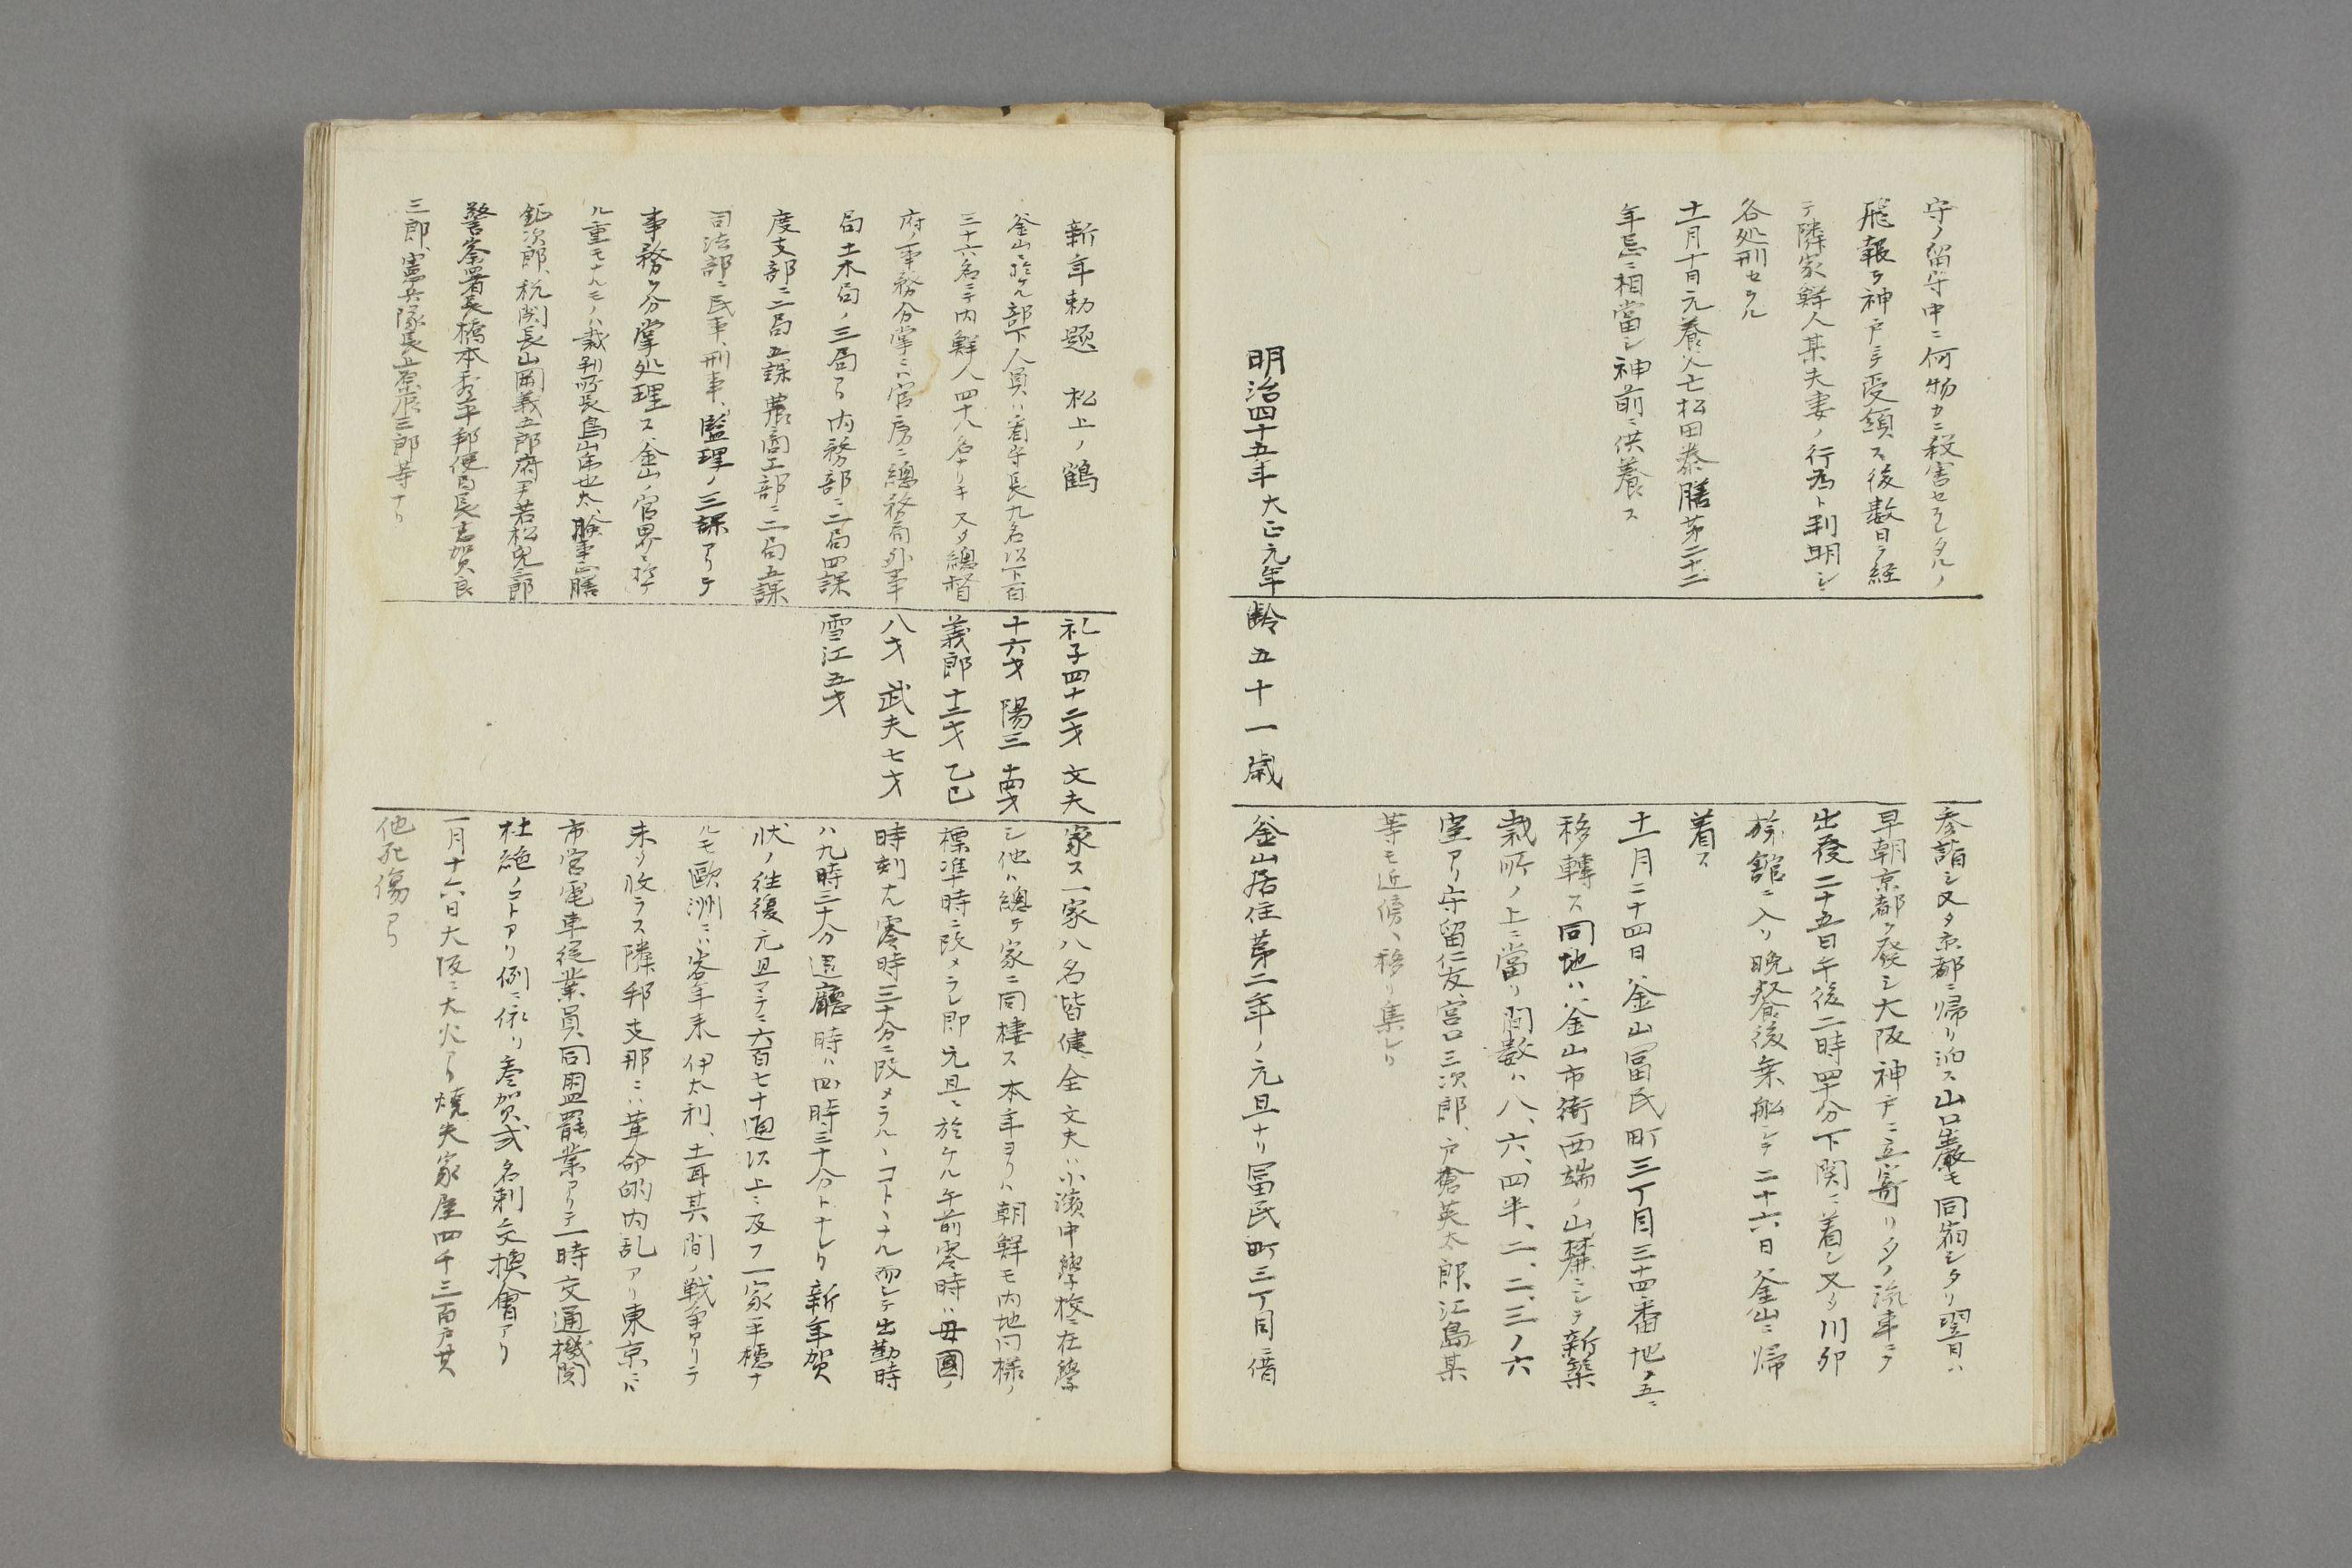 守ノ留守中ニ何物カニ殺害セラレタルノ
飛報ヲ神戸ニテ受領ス後数日ヲ経
テ隣家鮮人某夫妻ノ行為ト判明シ
各処刑セラル
十一月十一日元養父亡松田泰膳第二十二
年忌ニ相當シ神前ニ供養ス
参詣シ又タ京都ニ帰リ泊ス山口生巌モ同宿シタリ翌日ハ
早朝京都ヲ發シ大阪神戸ニ立寄リ夕ノ汽車ニテ
出發二十五日午後二時四十分下関ニ着シ又タ川卯
旅館ニ入リ晩餐後乗船シテ二十六日釜山ニ帰
着ス
十一月二十四日釜山冨民町三丁目三十四番地ノ五ニ
移轉ス同地ハ釜山市街西端ノ山麓ニシテ新築
裁所ノ上ニ當リ間数ハ八、六、四半、二、二、三ノ六
室アリ守留仁友、宮口三次郎、戸倉英太郎、江島某
等モ近傍ヘ移リ集レリ
明治四十五年大正元年齢五十一歳
釜山居住第二年ノ元旦ナリ冨民町三丁目ニ借
新年勅題 松上ノ鶴
釜山ニ於ケル部下ノ人員ハ看守長九名以下百
三十六名ニテ内鮮人四十八名ナリキ又タ總督
府ノ事務分掌ニハ官房ニ總務局外事
局土木局ノ三局アリ内務部ニ二局四課
度支部ニ二局五課農商工部ニ二局五課
司法部ニ民事、刑事、監理ノ三課アリテ
事務ヲ分掌処理ス釜山ノ官界ニ於テ
ル重モナルモノハ裁判所長島山浩也太、膾事正膳
鉦次郎、税関長山岡義五郎府尹若松兎三郎
警察署長橋本秀平郵便局長志賀良
三郎、憲兵隊長丘原辰三郎等ナリ
礼子四十二才 文夫
十六才 陽三 十四才
義郎 十二才 乙巳
八才 武夫七才
雪江五才
家ス一家八名皆健全文夫ハ小濱中學校ニ在學
シ他ハ總テ家ニ同棲ス本年ヨリハ朝鮮モ内地同様ノ
標準時ニ改メラレ即元旦ニ於ケル午前零時ハ母國ノ
時刻ナル零時三十分ニ改メラルヽコトヽナル而シテ出勤時
ハ九時三十分退廳時ハ四時三十分トナレリ新年賀
状ノ往復元旦マテニ六百七十通以上ニ及フ一家平穏ナ
ルモ歐洲ニハ客年来伊太利、土耳其間ノ戦争アリテ
未タ收ラス隣邦支那ニハ革命的内乱アリ東京ニハ
市営電車従業員同盟罷業アリテ一時交通機関
杜絶ノコトアリ例ニ依リ参賀式名刺交換會アリ
一月十六日大阪ニ大火アリ焼失家屋四千三百戸其
他死傷アリ